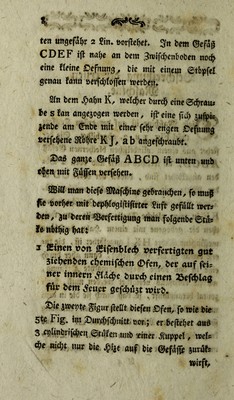 2
ten ungefähr 2 Lin. vorstehet. In dem Gefäß
CDEF ist nahe an dem Zwischenboden noch
eine kleine Oefnung, die mit einem Stöpsel
genau kann verschlossen werden.
An dem Hahn K, welcher durch eine Schrau-
be s kan angezogen werden, ist eine sich zuspi-
zende am Ende mit einer sehr engen Oefnung
versehene Röhre KJ, ab angeschraubt.
Das ganze Gefäß ABCD ist unten und
oben mit Füssen versehen.
Will man diese Maschine gebrauchen, so muß
sie vorher mit dephlogistisirter Luft gefüllt wer-
den, zu deren Verfertigung man folgende Stü-
ke nöthig hat:
1 Einen von Eisenblech verfertigten gut
ziehenden chemischen Ofen, der auf sei-
ner innern Fläche durch einen Beschlag
für dem Feuer geschüzt wird.
Die zweyte Figur stellt diesen Ofen, so wie die
5te Fig. im Durchschnitt vor; er bestehet aus
3 cylindrischen Stüken und einer Kuppel, wel-
che nicht nur die Hize auf die Gefässe zurük-
wirft,